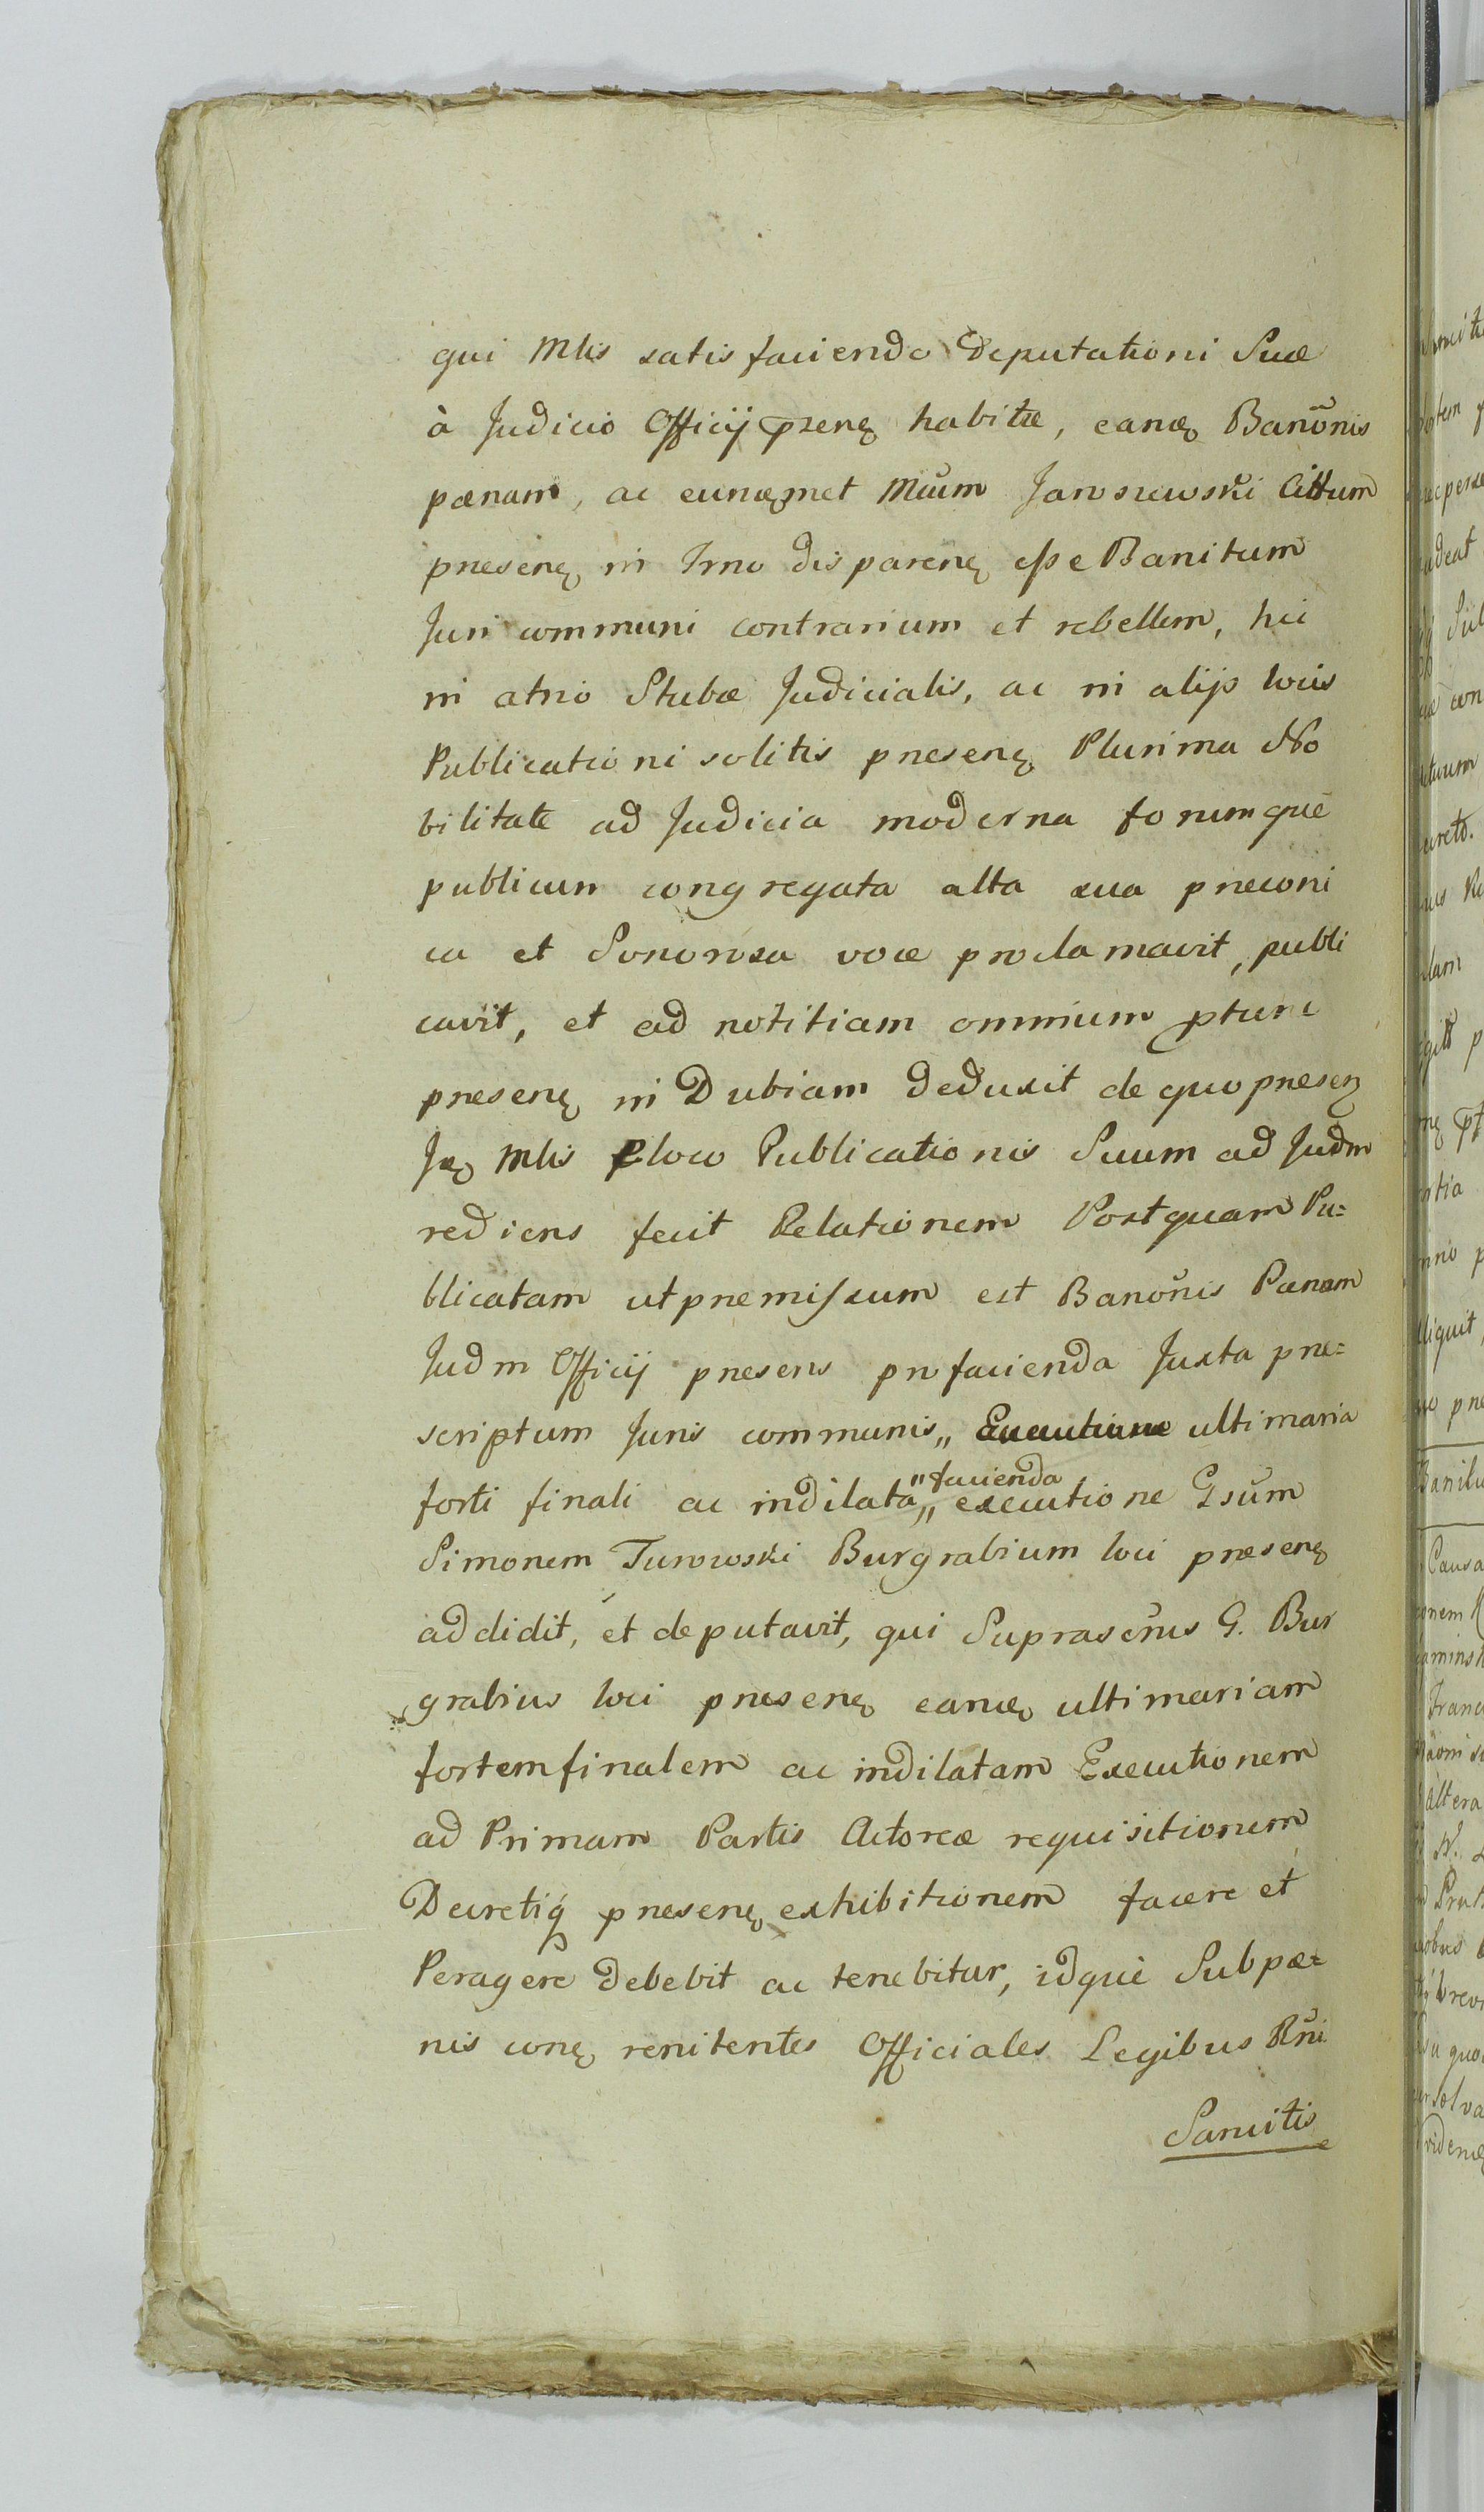 qui Mlis satisfaciendo Deputationi Suæ
à Judicio Officij pzenꝫ habitæ, eanꝫ Banõnis
pænam, ac eunꝫmet Mcũm Jaroszewski Cittum
presenꝫ in Trno disparenꝫ esse Banitum
Juri communi contrarium et rebellem, hic
in atrio Stubæ Judicialis, ac in alijs locis
Publicationi solitis presenꝫ Plurima No
bilitate ad Judicia moderna forumque
publicum congregata alta sua preconi
ca et Sonorosa voce proclamavit, publi
cavit, et ad notitiam omnium ptunc
presenꝫ in Dubiam deduxit de quo presenꝫ
Mlis loco Publicationis Suum ad Judm
rediens fecit Relationem Postquam Pu=
blicatam ut premissum est Banõnis Pænam
Judm Officij presens pro facienda Juxta pre=
scriptum Juris communis „ Executione ultimaria
forti finali ac indilata „ executione Gsũm
"facienda
Simonem Turowski Burgrabium loci præsenꝫ
addidit, et deputavit, qui Suprascrus G. Bur
grabius loci presenꝫ eanꝫ ultimariam
fortem finalem ac indilatam Executionem
ad Primam Partis Actoreæ requisitionem
Decretiq́ presenꝫ exhibitionem facere et
Peragere debebit ac tenebitur, idquè Sub pæ=
nis conꝫ renitentes Officiales Legibus Rñi
Sancitis